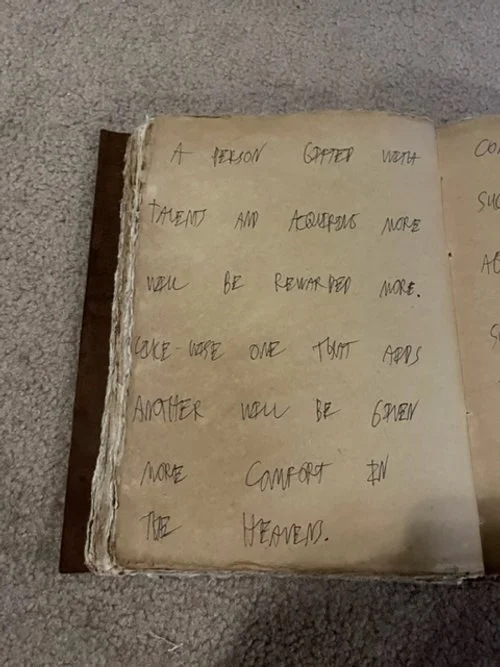 A PERSON GIFTED WITH
TALENT AND ACQUIRING MORE
WILL BE REWARDED MORE.
LIKE-WISE ONE THAT ADDS
ANOTHER WILL BE GIVEN
MORE COMFORT IN
THE HEAVENS.